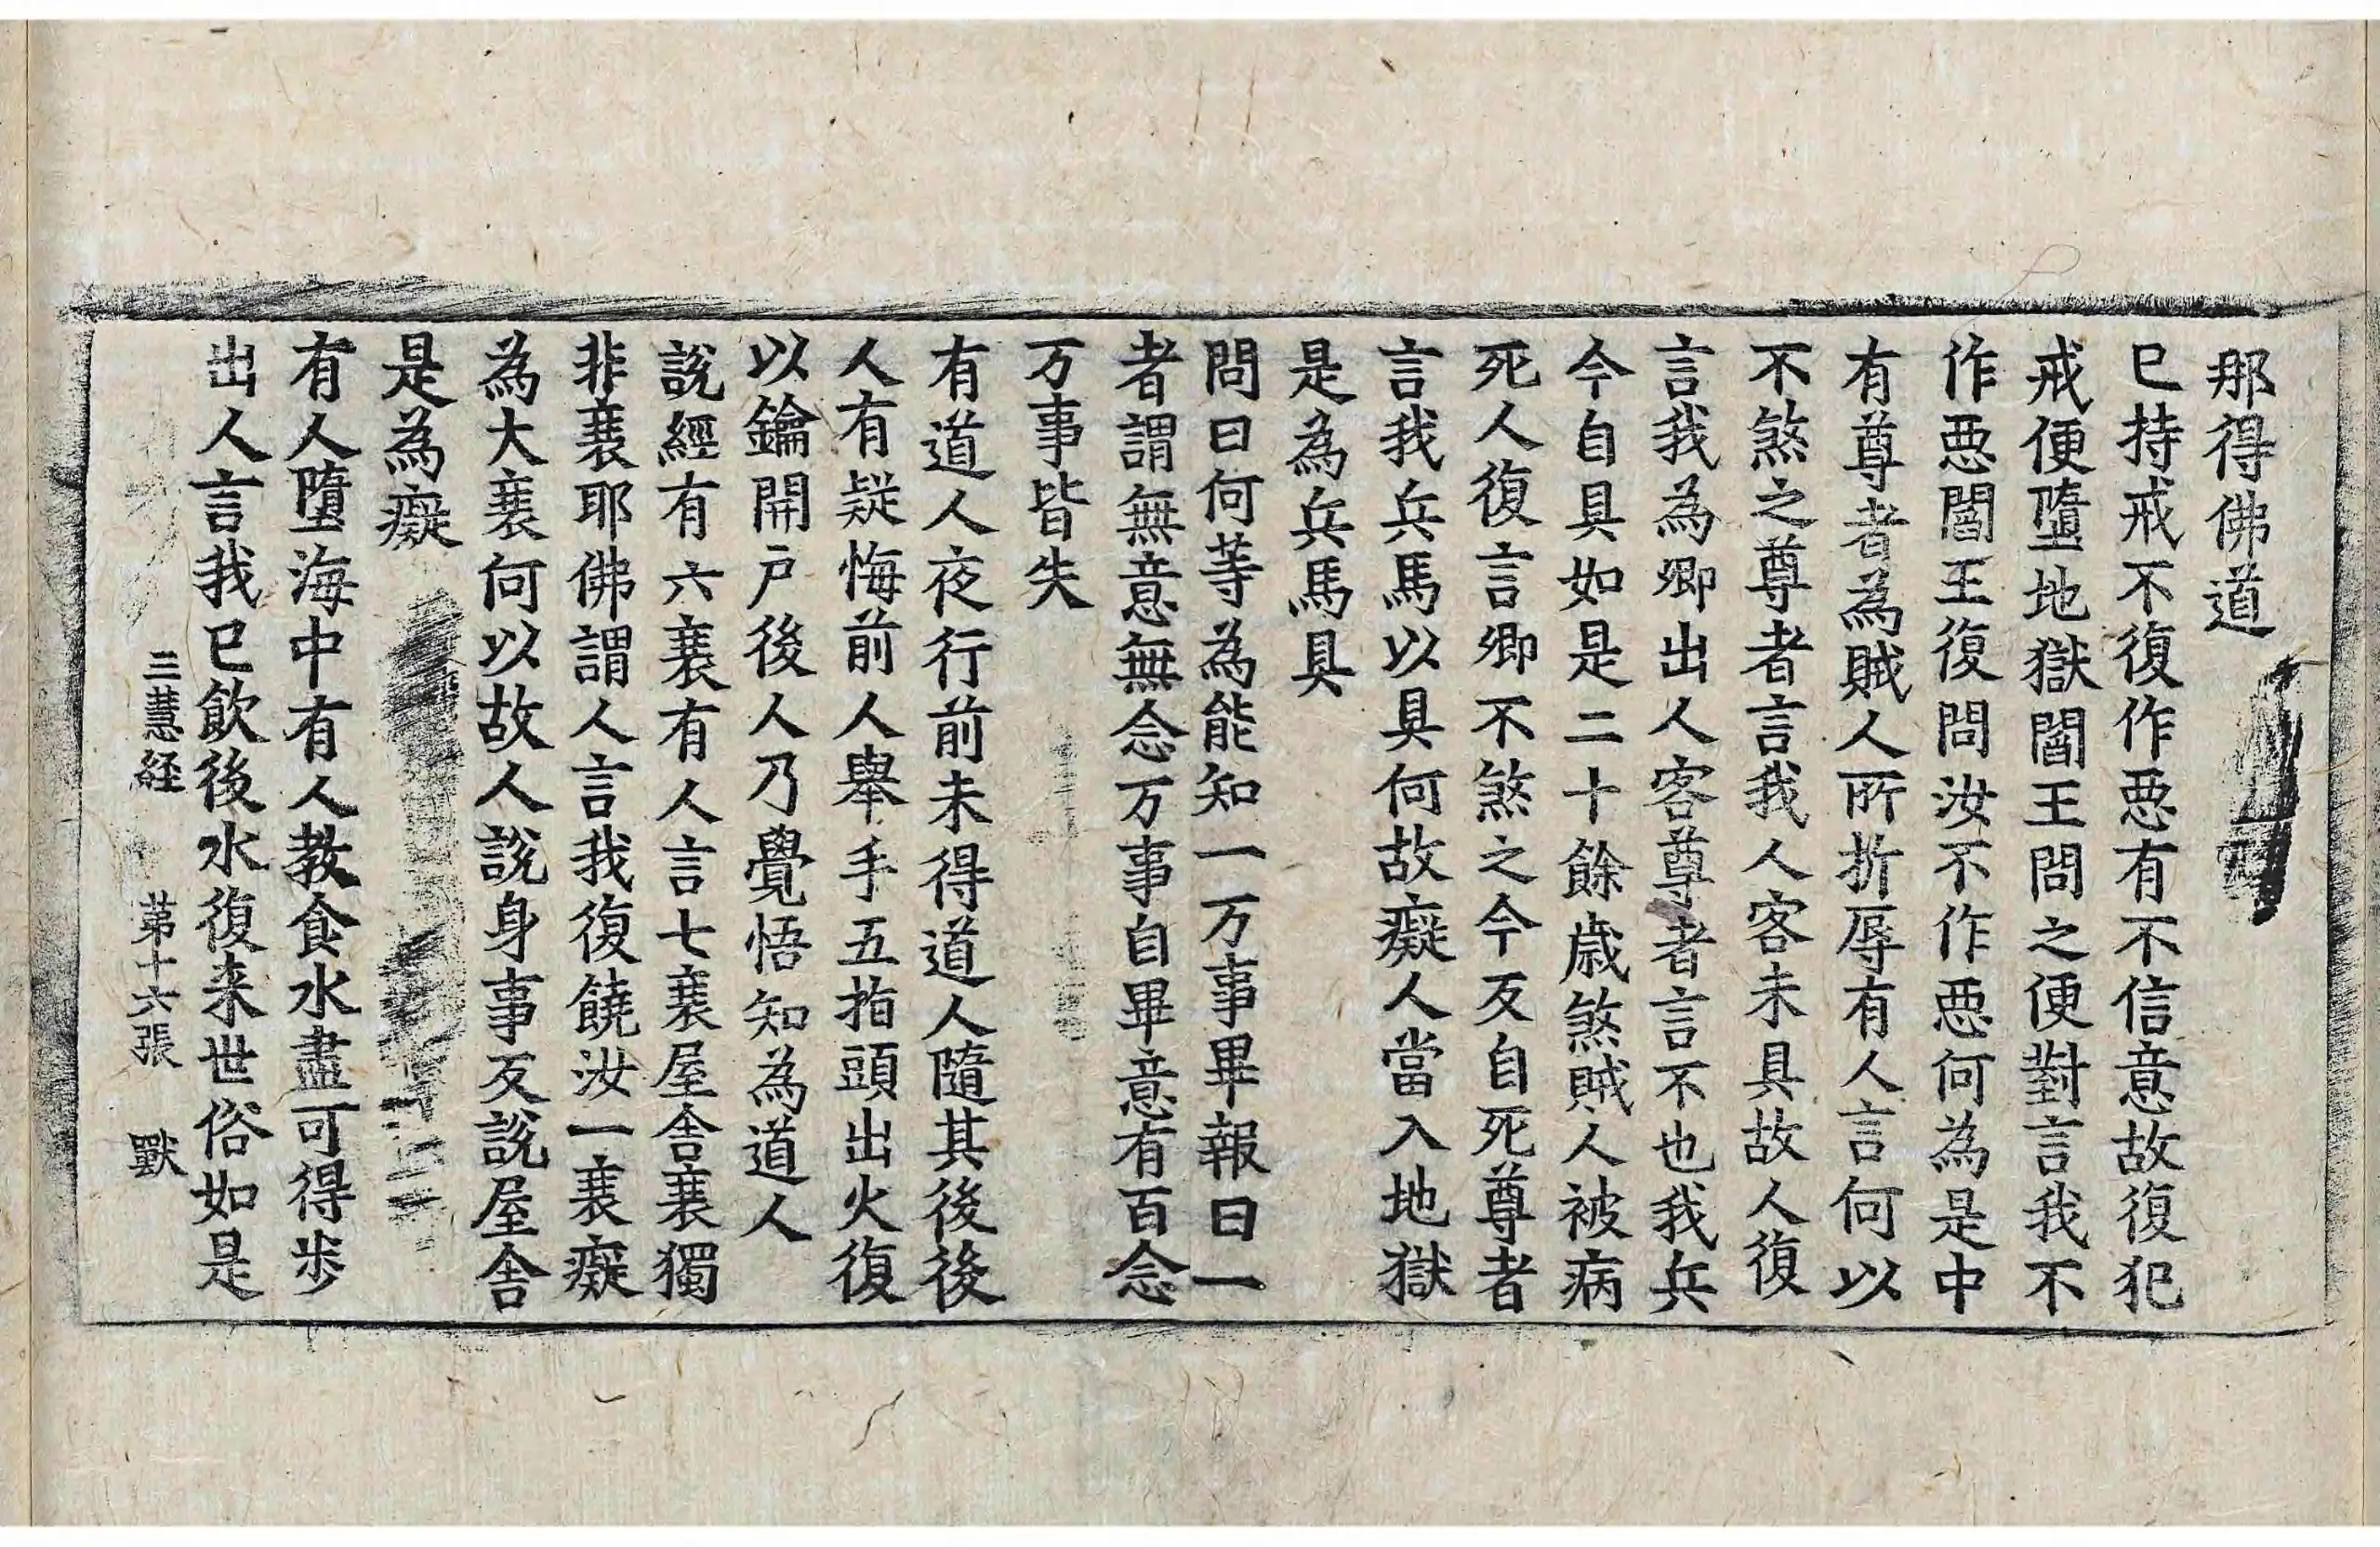 那得佛道
已持戒不復作惡有不信意故復犯
戒便墮地獄閻王問之便對言我不
作惡閻王復問汝不作惡何為是中
有尊者為賊人所折辱有人言何以
不煞之尊者言我人客未具故人復
言我為卿出人客尊者言不也我兵
今自具如是二十餘歲煞賊人被病
死人復言卿不煞之今反自死尊者
言我兵馬以具何故癡人當入地獄
是為兵馬具
問曰何等為能知一万事畢報曰一
者謂無意無念万事自畢意有百念
万事皆失
有道人夜行前未得道人隨其後後
人有疑悔前人舉手五指頭出火復
以鑰開戶後人乃覺悟知為道人
說經有六衰有人言七衰屋舍衰獨
非衰耶佛謂人言我復饒汝一衰癡
為大衰何以故人說身事反說屋舍
是為癡
有人墮海中有人教食水盡可得步
出人言我已飲後水復来世俗如是
三慧経 第十六張 獸